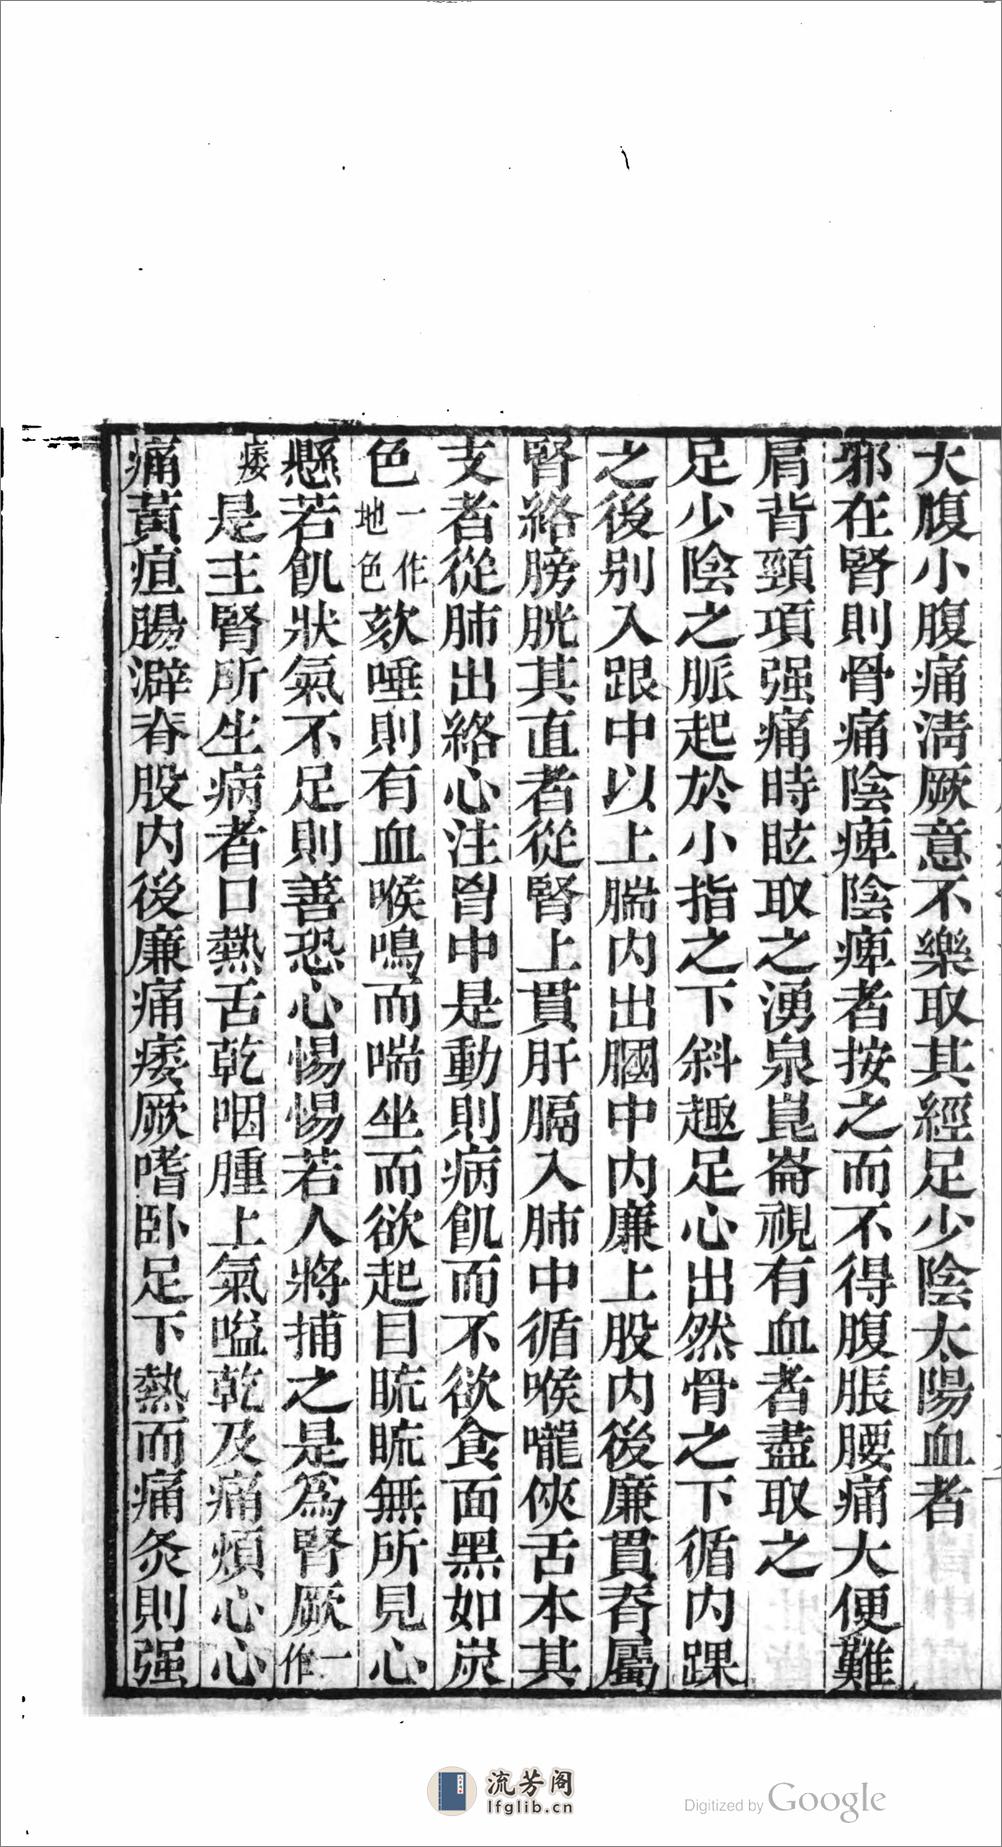 大腹小腹痛淸厥意不樂取其經足少陰太陽血者
邪在腎則骨痛陰痺陰痺者按之而不得腹脹腰痛大便難
肩背頸項强痛時眩取之湧泉崑崙視有血者盡取之
足少陰之脈起於小指之下斜趣足心出然骨之下循內踝
之後別入跟中以上腨內出膕中內廉上股內後廉貫脊屬
腎絡膀胱其直者從腎上貫肝膈入肺中循喉嚨俠舌本其
支者從肺出絡心注胷中是動則病飢而不欲食面黑如炭
色一作地色欬唾則有血喉鳴而喘坐而欲起目䀮䀮無所見心
懸若飢狀氣不足則善恐心惕惕若人將捕之是爲腎厥一作
痿是主腎所生病者口熱舌乾咽腫上氣嗌乾及痛煩心心
痛黃疸腸澼脊股內後廉痛痿厥嗜卧足下熱而痛灸則强
流芳阁
lfglib.cn
Digitized by Google